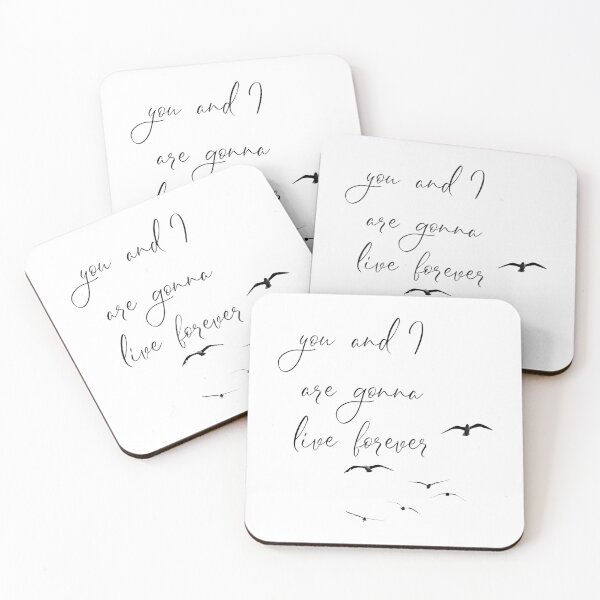 you and I
are gonna
live forever
you and I
are gonna
live forever
you and I
are gonna
live forever
you and I
are gonna
live forever